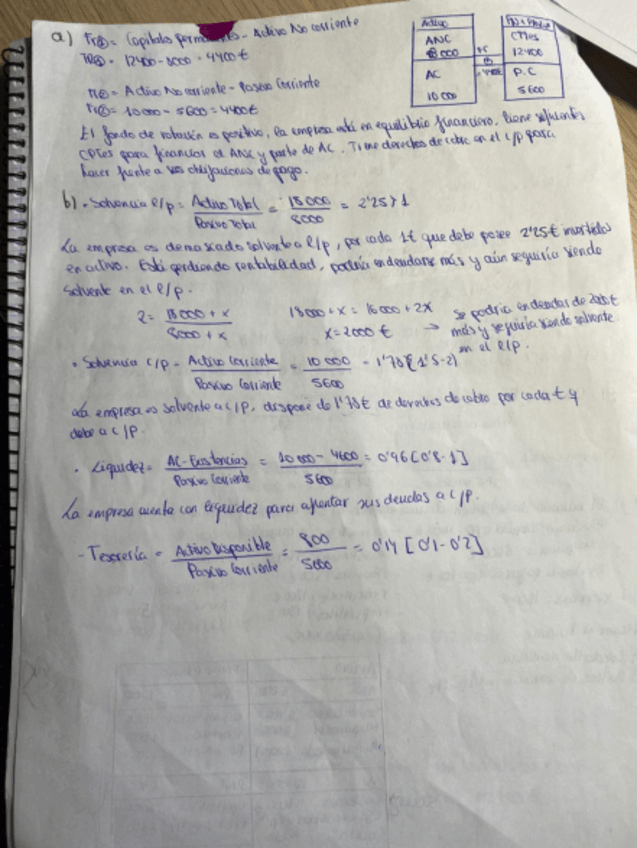 a) FR① = Capitales permanentes - Activo No corriente
FR① = 12400 - 8000 = 4400 €
FR② = Activo No corriente - Pasivo Corriente
FR② = 10000 - 5600 = 4400 €
Activo
ANC
8000
AC
10000
FR
4400€
CPTes
12400
P.C
5600
El fondo de rotación es positivo, la empresa está en equilibrio financiero, tiene suficientes
CPTes para financiar el ANC y parte de AC. Tiene derechos de cobro en el c/p para
hacer frente a sus obligaciones de pago.
b) • Solvencia l/p = Activo Total / Pasivo Total = 18000 / 8000 = 2'25 > 1
La empresa es demasiado solvente a l/p, por cada 1€ que debe posee 2'25€ invertidos
en activo. Está perdiendo rentabilidad, podría endeudarse más y aún seguiría siendo
solvente en el l/p.
2 = 18000 + x / 8000 + x
18000 + x = 16000 + 2x
x = 2000 €
→ Se podría endeudar de 2000€
más y seguiría siendo solvente
en el l/p.
• Solvencia c/p = Activo Corriente / Pasivo Corriente = 10000 / 5600 = 1'78 [1'5-2]
La empresa es solvente a c/p, dispone de 1'78€ de derechos de cobro por cada € q
debe a c/p.
• Liquidez = AC-Existencias / Pasivo Corriente = 10000 - 4600 / 5600 = 0'96 [0'8-1]
La empresa cuenta con liquidez para afrontar sus deudas a c/p.
- Tesorería = Activo Disponible / Pasivo Corriente = 800 / 5600 = 0'14 [0'1-0'2]